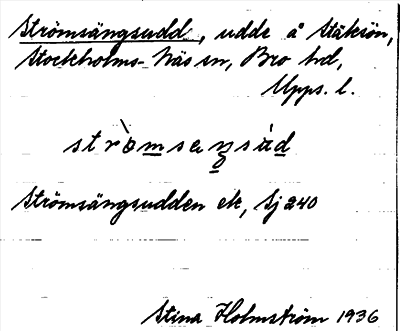 Strömsängsudd, udde å Stäksön,
Stockholms-Näs sn, Bro hd,
Upps. l.
strò̀m sɛŋsùd
Strömsängsudden ek, Sj 240
Stina Holmström 1936